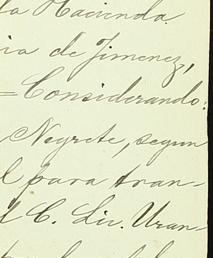 la Hacienda.
ia de Jimenez,
=Considerando:
Negrete, segun
l para tran-
l C. Lic. Uran-